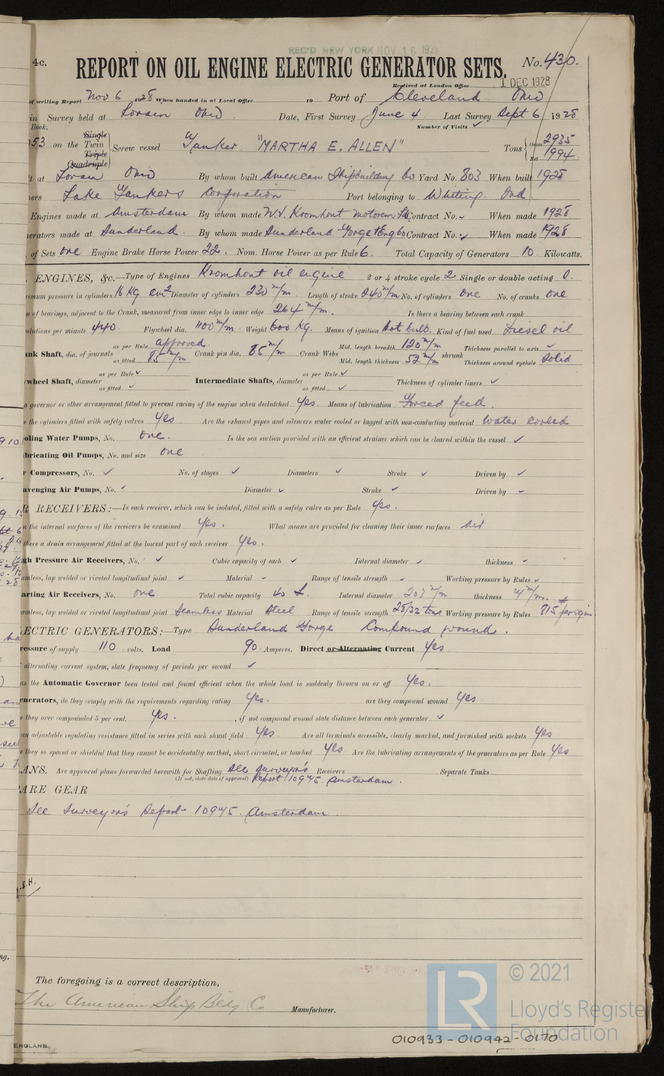 REC'D NEW YORK NOV 16 1928
4c. REPORT ON OIL ENGINE ELECTRIC GENERATOR SETS. No. 430.
Received at London Office 1 DEC 1928
of writing Report Nov 6 1928 When handed in at Local Office 19 Port of Cleveland Ohio
in Survey held at Lorain Ohio. Date, First Survey June 4 Last Survey Sept 6 1928
Book. Number of Visits ✓
53 on the Single Twin Triple Quadruple Screw vessel Tanker "MARTHA E. ALLEN" Tons Gross 2935 Net 1994
t at Lorain Ohio By whom built American Shipbuilding Co Yard No. 803 When built 1928
ners Lake Tankers Corporation Port belonging to Whiting. Ind
Engines made at Amsterdam By whom made N.V. Kromhout Motoren Contract No. ✓ When made 1928
erators made at Sunderland. By whom made Sunderland Forge & Eng Co Contract No. ✓ When made 1928
of Sets one Engine Brake Horse Power 22. Nom. Horse Power as per Rule 6. Total Capacity of Generators 10 Kilowatts.
ENGINES, &c.—Type of Engines Kromhout oil engine 2 or 4 stroke cycle 2 Single or double acting
imum pressure in cylinders 16 KG cm² Diameter of cylinders 230 m/m. Length of stroke 245 m/m No. of cylinders one No. of cranks one
n of bearings, adjacent to the Crank, measured from inner edge to inner edge 264 m/m. Is there a bearing between each crank
olutions per minute 440 Flywheel dia. 1100 m/m. Weight 600 KG. Means of ignition Hot bulb. Kind of fuel used Diesel oil
ank Shaft, dia. of journals as per Rule approved as fitted 85 m/m Crank pin dia. 85 m/m Crank Webs Mid. length breadth 120 m/m Mid. length thickness 52 m/m shrunk Thickness parallel to axis ✓ Thickness around eyehole Solid
wheel Shaft, diameter as per Rule ✓ as fitted ✓ Intermediate Shafts, diameter as per Rule ✓ as fitted ✓ Thickness of cylinder liners ✓
a governor or other arrangement fitted to prevent racing of the engine when declutched Yes. Means of lubrication Forced feed.
e the cylinders fitted with safety valves Yes Are the exhaust pipes and silencers water cooled or lagged with non-conducting material Water cooled
oling Water Pumps, No. one. Is the sea suction provided with an efficient strainer which can be cleared within the vessel ✓
bricating Oil Pumps, No. and size one
r Compressors, No. ✓ No. of stages ✓ Diameters ✓ Stroke ✓ Driven by ✓
avenging Air Pumps, No. ✓ Diameter ✓ Stroke ✓ Driven by ✓
R RECEIVERS:—Is each receiver, which can be isolated, fitted with a safety valve as per Rule Yes.
n the internal surfaces of the receivers be examined Yes. What means are provided for cleaning their inner surfaces
there a drain arrangement fitted at the lowest part of each receiver Yes.
gh Pressure Air Receivers, No. ✓ Cubic capacity of each ✓ Internal diameter ✓ thickness ✓
amless, lap welded or riveted longitudinal joint ✓ Material ✓ Range of tensile strength ✓ Working pressure by Rules ✓
arting Air Receivers, No. one Total cubic capacity 40 L. Internal diameter thickness
amless, lap welded or riveted longitudinal joint Seamless Material Steel Range of tensile strength 28/32 tons Working pressure by Rules
ECTRIC GENERATORS:—Type Sunderland Forge Compound wound.
ressure of supply 110 volts. Load 90 Amperes. Direct or Alternating Current Yes
alternating current, state frequency of periods per second ✓
as the Automatic Governor been tested and found efficient when the whole load is suddenly thrown on or off Yes.
enerators, do they comply with the requirements regarding rating Yes. are they compound wound Yes
e they over compounded 5 per cent. Yes. , if not compound wound state distance between each generator ✓
an adjustable regulating resistance fitted in series with each shunt field Yes Are all terminals accessible, clearly marked, and furnished with sockets Yes
e they so spaced or shielded that they cannot be accidentally earthed, short circuited, or touched Yes Are the lubricating arrangements of the generators as per Rule Yes
ANS. Are approved plans forwarded herewith for Shafting See Surveyors Receivers Separate Tanks
(If not, state date of approval) Report 10945. Amsterdam.
ARE GEAR
See Surveyor's Report 10945. Amsterdam.
The foregoing is a correct description,
The American Ship Bldg Co Manufacturer.
ENGLAND.
LR © 2021
Lloyd's Register
Foundation
010933-010942-0170